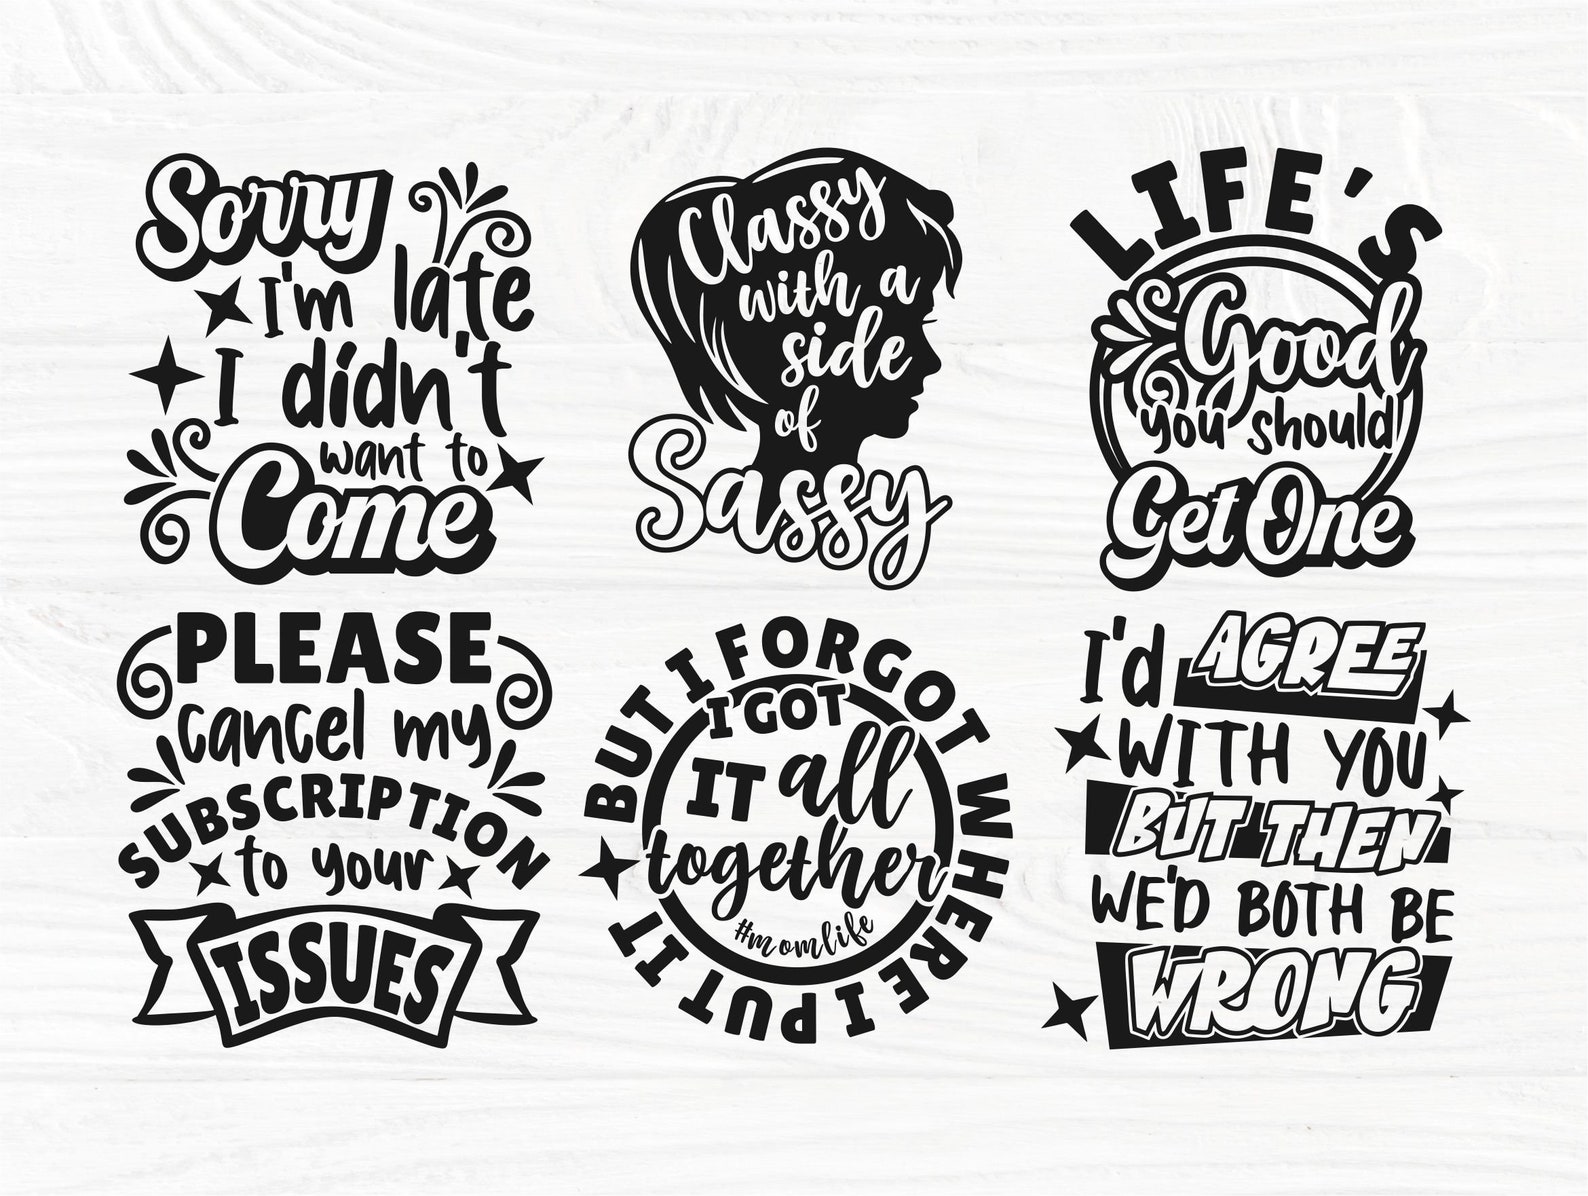 Sorry
I'm late
I didn't
want to
Come
Classy
with a
side
of
Sassy
LIFE'S
Good
you should
Get One
PLEASE
cancel my
SUBSCRIPTION
to your
ISSUES
I GOT
IT all
together
#momlife
BUT I FORGOT WHERE I PUT IT
I'd AGREE
WITH YOU
BUT THEN
WE'D BOTH BE
WRONG